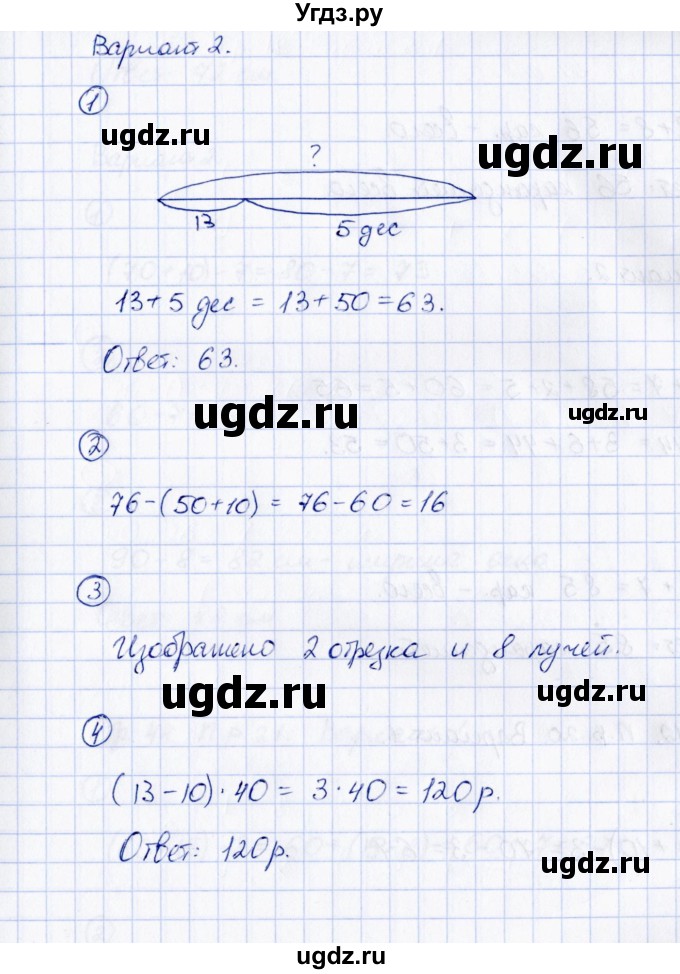 Угдз.ру
Вариант 2.
1
ugdz.ru
ugdz.ru
?
13
5 дес
13+5 дес = 13+50=63.
Ответ: 63.
ugdz.ru
ugdz.ru
2
76-(50+10) = 76-60=16
3
Изображено 2 отрезка и 8 лучей.
ugdz.ru
ugdz.ru
4
(13-10)·40= 3·40=120р.
Ответ: 120р.
ugdz.ru
ugdz.ru
ugdz.ru